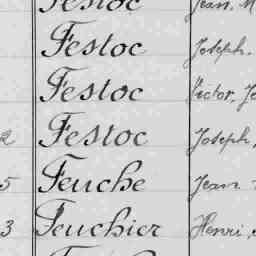 Festoc Jean. M
Festoc Joseph.
Festoc Victor, Jo
2 Festoc Joseph,
5 Feuche Jean.
3 Feuchier Henri,